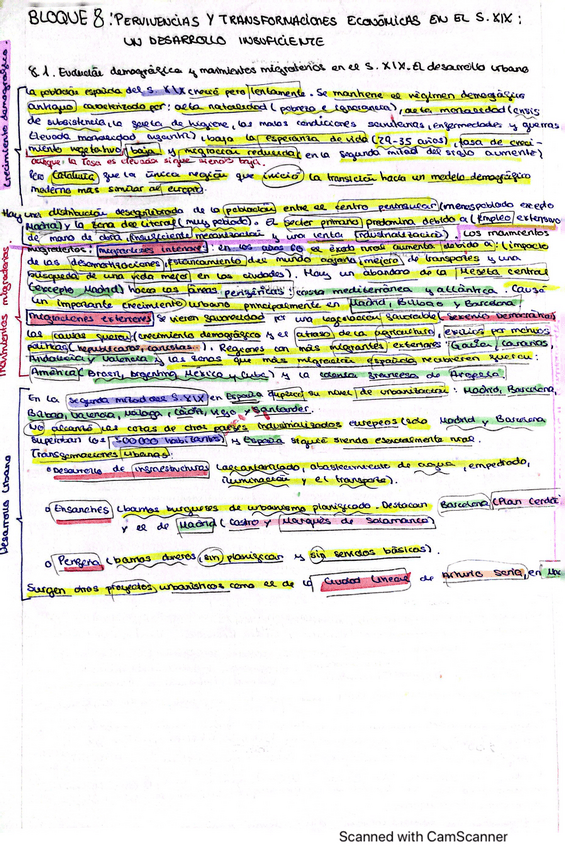 BLOQUE 8: PERVIVENCIAS Y TRANSFORMACIONES ECONÓMICAS EN EL S. XIX:
UN DESARROLLO INSUFICIENTE
8.1. Evolución demográfica y movimientos migratorios en el S. XIX. El desarrollo urbano
Crecimiento demográfico.
La población española del S. XIX creció pero lentamente. Se mantiene el régimen demográfico
antiguo caracterizado por: alta natalidad (pobreza e ignorancia), alta mortalidad (crisis
de subsistencia, la falta de higiene, las malas condiciones sanitarias, enfermedades y guerras
Elevada mortalidad infantil) baja esperanza de vida (29-35 años), tasa de creci-
miento vegetativo baja y migración reducida en la segunda mitad del siglo aumenta)
aunque la tasa es elevada sigue siendo baja.
Fue Cataluña que la única región que inició la transición hacia un modelo demográfico
moderno más similar al europeo.
Movimientos migratorios
Hay una distribución desequilibrada de la población entre el centro peninsular (menos poblado excepto
Madrid) y la zona del litoral (muy poblado). El sector primario predomina debido a (Empleo extensivo
de mano de obra, insuficiente mecanización y una lenta industrialización). Los movimientos
migratorios: migraciones interiores: en los años 60 el éxodo rural aumenta debido a: (impacto
de las desamortizaciones, estancamiento del mundo agrario, mejora de transportes y una
búsqueda de una vida mejor en las ciudades). Hay un abandono de la Meseta central
(excepto Madrid) hacia las áreas periféricas: costa mediterránea y atlántica. Causó
un importante crecimiento urbano principalmente en Madrid, Bilbao y Barcelona.
Migraciones exteriores: Se vieron favorecidas por una legislación favorable, sexenio democrático
las causas fueron (crecimiento demográfico y el atraso de la agricultura, exilios por motivos
políticos (republicanos, carlistas). Regiones con más migrantes exteriores: Galicia, Canarias,
Andalucía y Valencia y las zonas que más migración española recibieron fueron:
América (Brasil, Argentina, México y Cuba) y la colonia francesa de Argelia.
Desarrollo Urbano
En la segunda mitad del S. XIX en España duplicó su nivel de urbanización: Madrid, Barcelona,
Bilbao, Valencia, Málaga, Cádiz, Vigo y Santander.
No alcanzó las cotas de otros países industrializados europeos (solo Madrid y Barcelona
superaban los 500 000 habitantes) y España siguió siendo esencialmente rural.
Transformaciones urbanas:
Desarrollo de infraestructuras (alcantarillado, abastecimiento de agua, empedrado,
iluminación y el transporte).
Ensanches (barrios burgueses de urbanismo planificado. Destacan Barcelona (Plan Cerdá)
y el de Madrid (Castro y Marqués de Salamanca)
Periferia (barrios obreros, sin planificar y sin servicios básicos).
Surgen otros proyectos urbanísticos como el de la Ciudad Lineal de Arturo Soria, en
Scanned with CamScanner